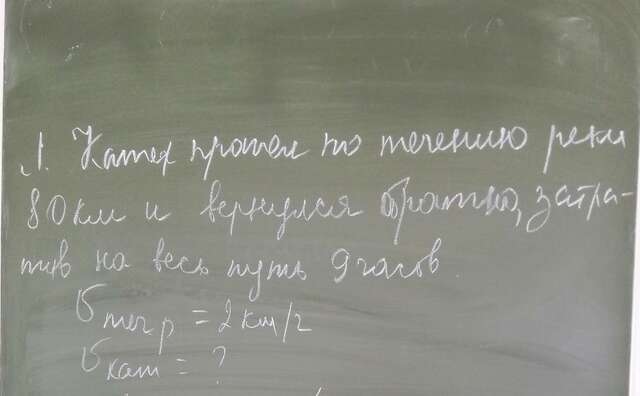 1. Катер прошел по течению реки
80 км и вернулся обратно, затра-
тив на весь путь 9 часов.
υ теч р = 2 км/ч
υ кат = ?